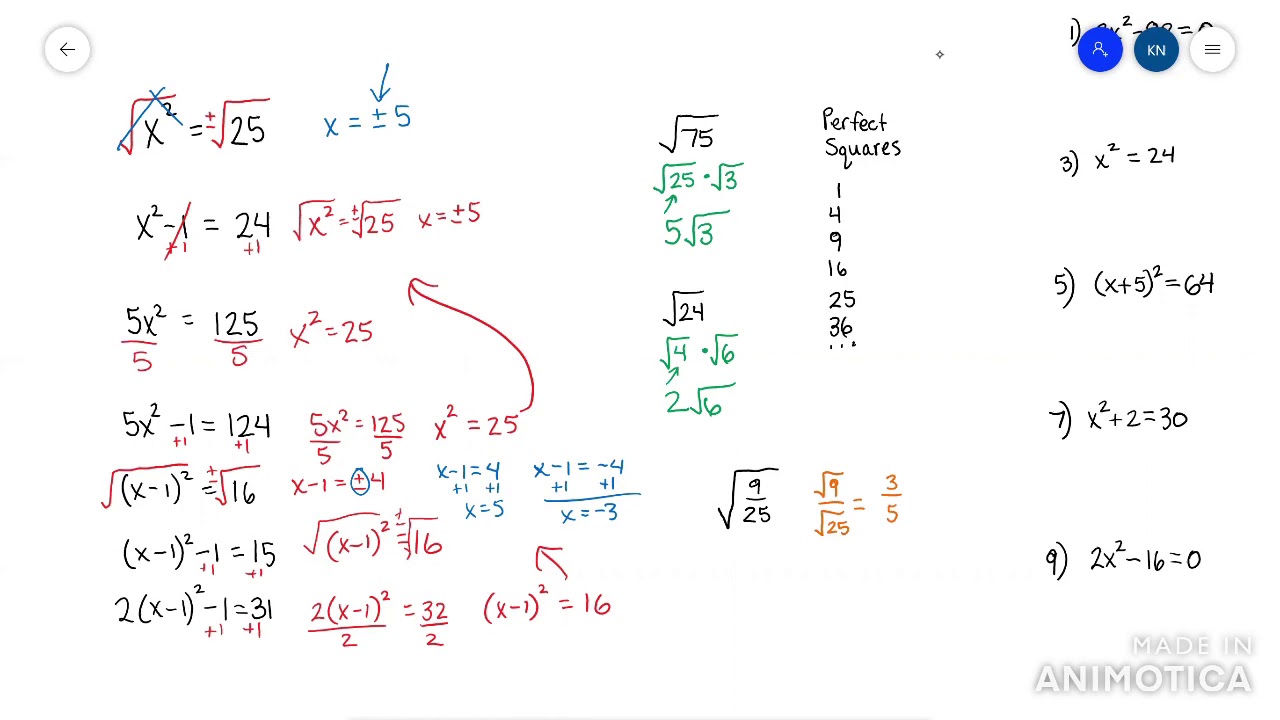 √x² = ±√25 x = ±5
x² - 1 = 24 √x² = ±√25 x = ±5
+1 +1
5x² = 125 x² = 25
5 5
5x² - 1 = 124 5x² = 125 x² = 25
+1 +1 5 5
√(x-1)² = ±√16 x-1 = ±4 x-1 = 4 x-1 = -4
+1 +1 +1 +1
x = 5 x = -3
(x-1)² - 1 = 15 √(x-1)² = ±√16
+1 +1
2(x-1)² - 1 = 31 2(x-1)² = 32 (x-1)² = 16
+1 +1 2 2
√75
√25 · √3
5√3
√24
√4 · √6
2√6
√9/25 √9/√25 = 3/5
Perfect
Squares
1
4
9
16
25
36
...
KN
1)
3) x² = 24
5) (x+5)² = 64
7) x² + 2 = 30
9) 2x² - 16 = 0
MADE IN
ANIMOTICA